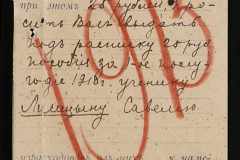 при этом 20 рублей, про-
ситъ Васъ выдать
подъ расписку 20 руб
пособія за 1-ое полу-
годіе 1918 г. ученику
Лицыну Савелію